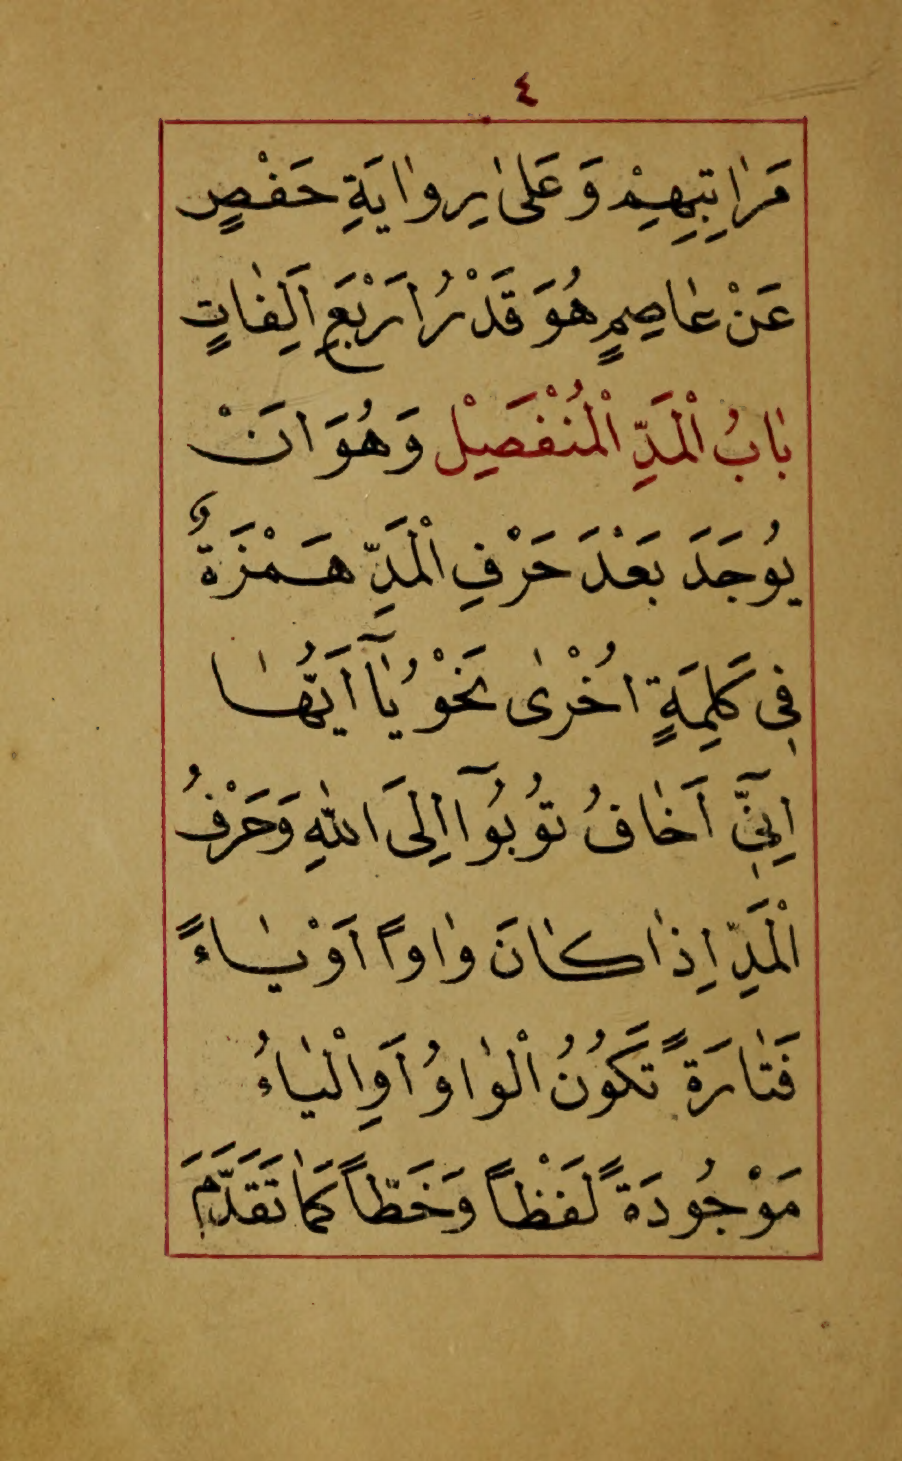 ٤
مَرٰاتِبِهِمْ وَعَلىٰ رِوٰايَةِ حَفْصٍ
عَنْ عٰاصِمٍ هُوَ قَدْرُ اَرْبَعِ اَلِفٰاتٍ
بٰابُ الْمَدِّ الْمُنْفَصِيْلْ وَهُوَ اَنْ
يُوْجَدَ بَعْدَ حَرْفِ الْمَدِّ هَمْزَةٌ
فِى كَلِمَةٍ اُخْرٰى نَحْوُ يٰٓا اَيُّهٰا
اِنِّىٓ اَخٰافُ تُوْبُوْٓا اِلَى اللّٰهِ وَحَرْفُ
الْمَدِّ اِذٰا كٰانَ وٰاواً اَوْ يٰاءً
فَتٰارَةً تَكُوْنُ الْوٰاوُ اَوِ الْيٰاءُ
مَوْجُودَةً لَفْظاً وَخَطّاً كَمٰا تَقَدَّمَ